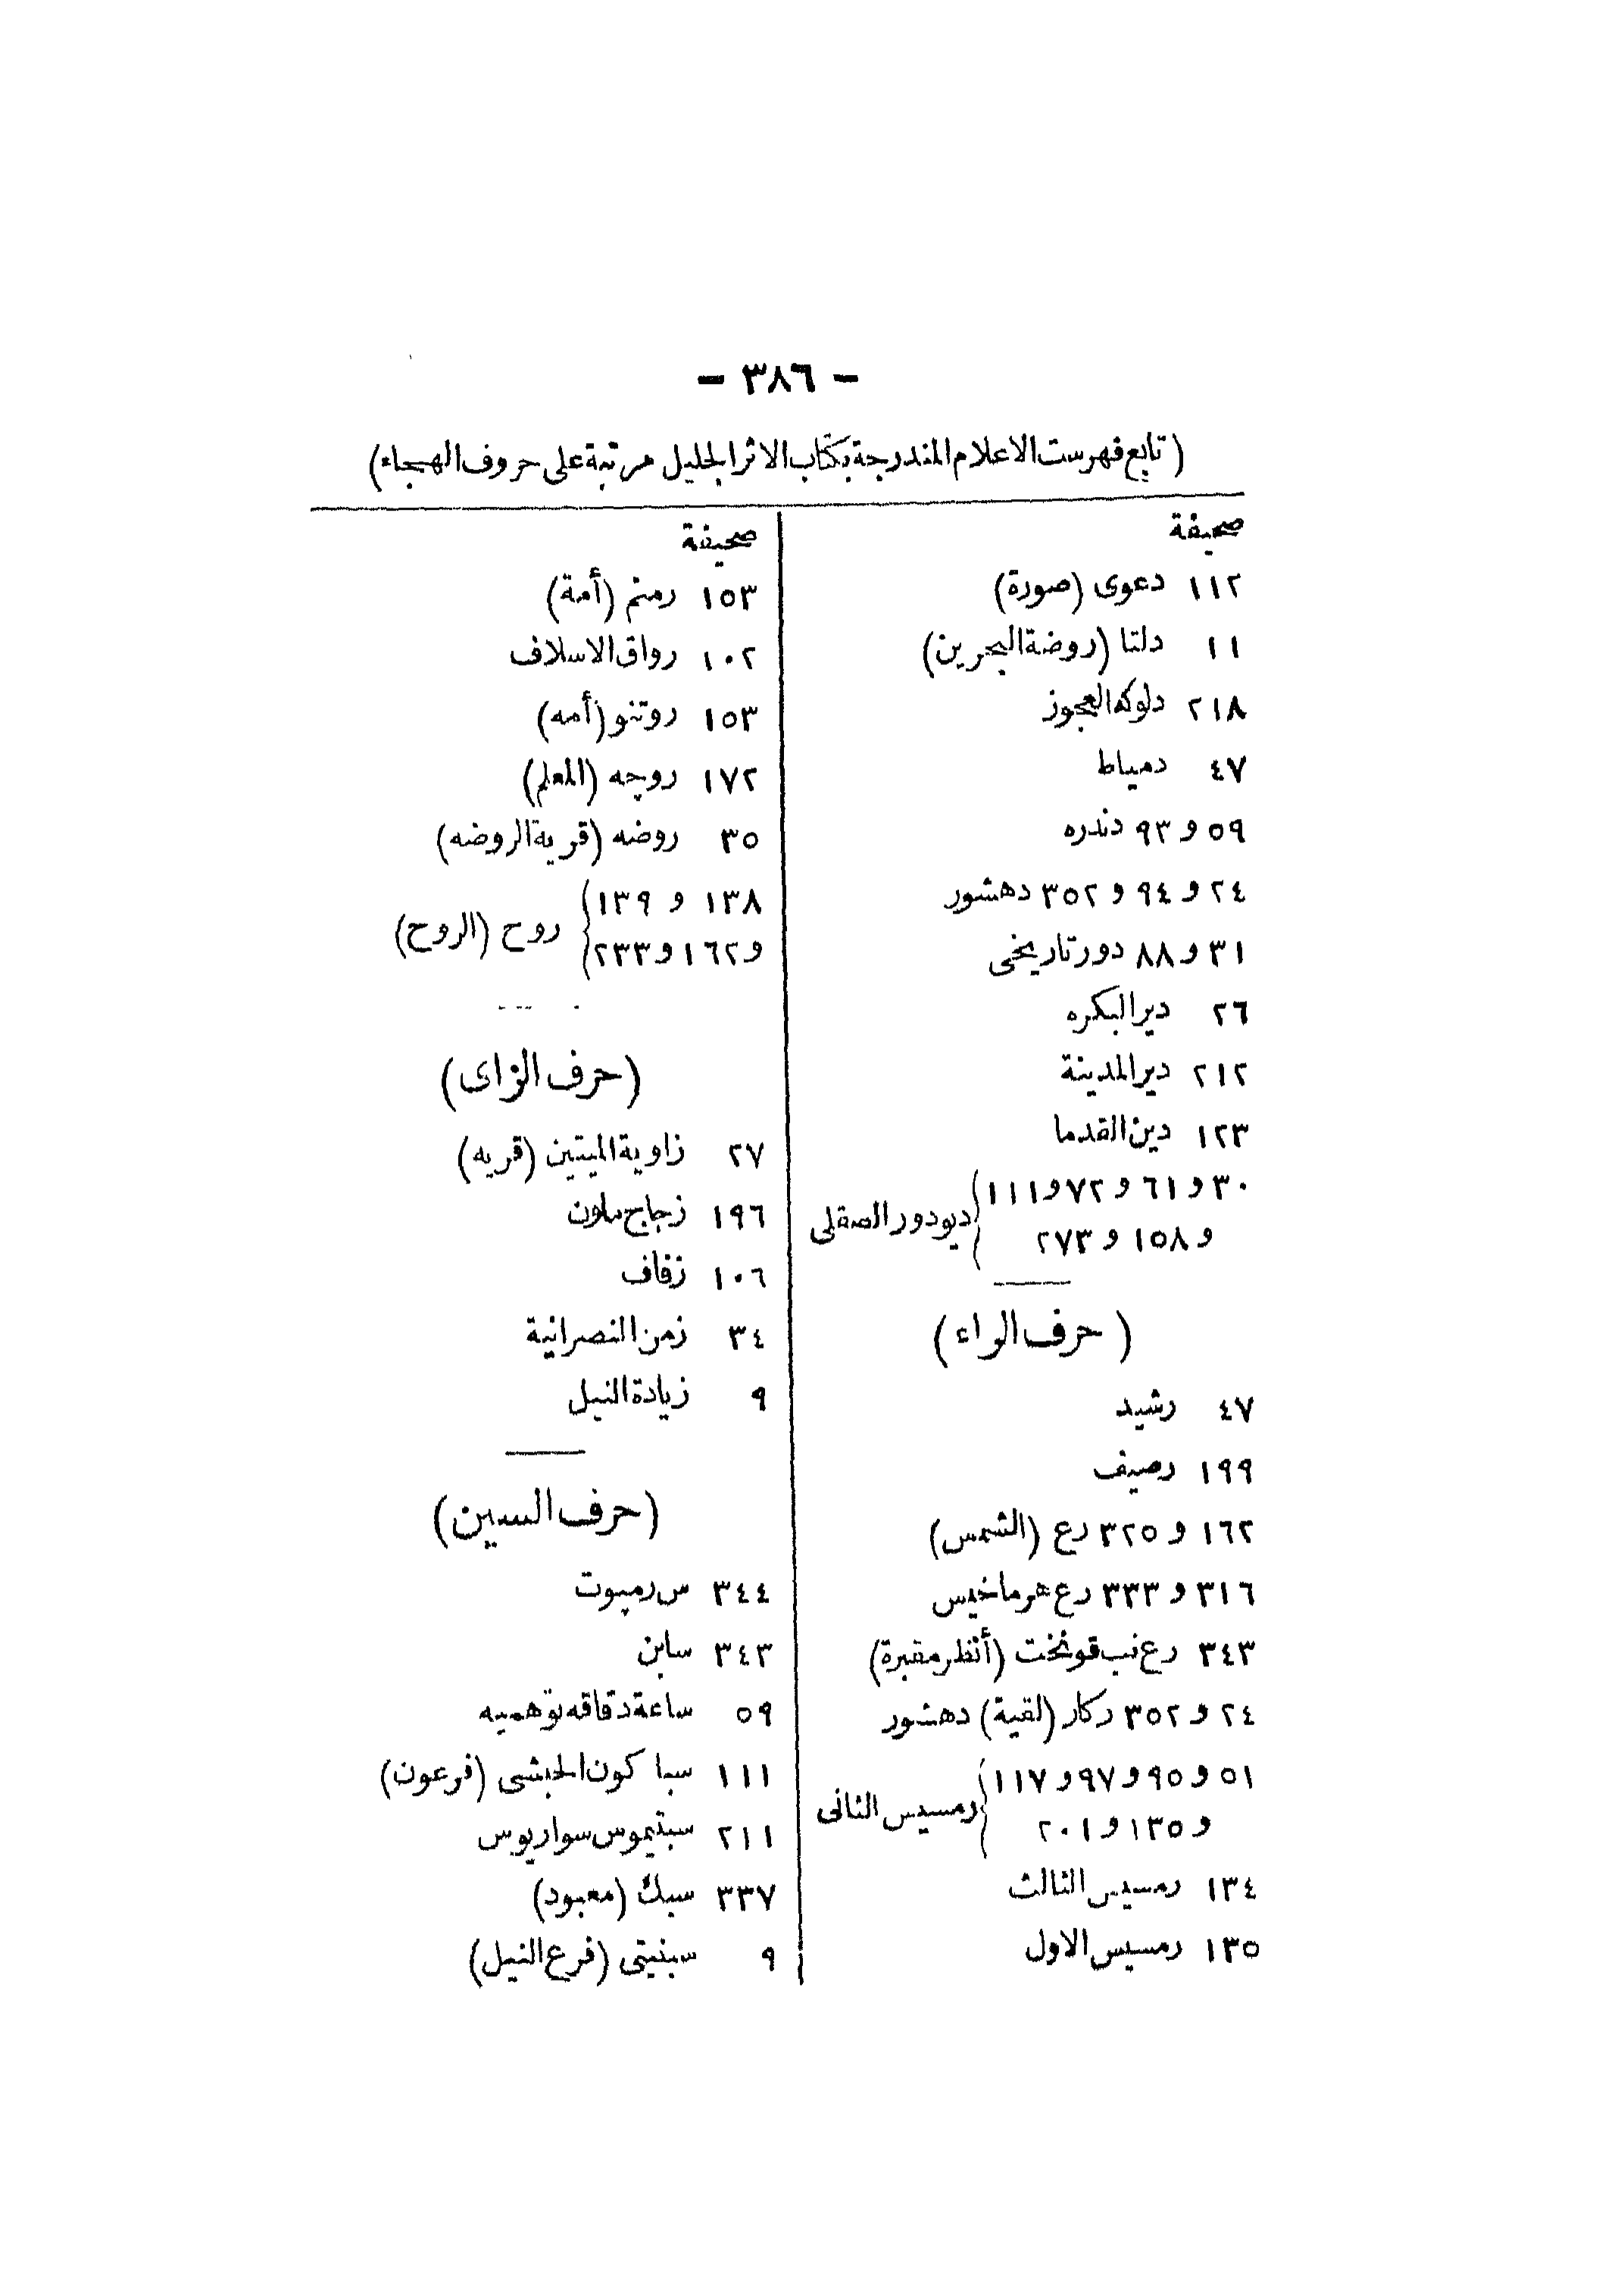 - ٣٨٦ -
(تابع فهرست الاعلام المندرجة بكتاب الاثر الجليل مرتبة على حروف الهجاء)
صحيفة
١١٢ دعوى (صورة)
١١ دلتا (روضة البحرين)
٢١٨ دلوكه العجوز
٤٧ دمياط
٥٩ و ٩٣ دندره
٢٤ و ٩٤ و ٣٥٢ دهشور
٣١ و ٨٨ دور تاريخى
٢٦ دير البكره
٢١٢ دير المدينة
١٢٣ دين القدما
٣٠ و ٦١ و ٧٢ و ١١١
و ١٥٨ و ٢٧٣ } ديودور الصقلى
(حرف الراء)
٤٧ رشيد
١٩٩ رصيف
١٦٢ و ٣٢٥ رع (الشمس)
٣١٦ و ٣٣٣ رع هرماخيس
٣٤٣ رع نب قونخت (أنظر مقبرة)
٢٤ و ٣٥٢ ركار (لقية) دهشور
٥١ و ٩٥ و ٩٧ و ١١٧
و ١٣٥ و ٢٠١ } رمسيس الثانى
١٣٤ رمسيس الثالث
١٣٥ رمسيس الاول
صحيفة
١٥٣ رمنم (أمة)
١٠٢ رواق الاسلاف
١٥٣ روتنو (أمه)
١٧٢ روچه (المعلم)
٣٥ روضه (قرية الروضه)
١٣٨ و ١٣٩
و ١٦٢ و ٢٣٣ } روح (الروح)
(حرف الزاى)
٢٧ زاوية الميتين (قريه)
١٩٦ زجاج ملون
١٠٦ زفاف
٣٤ زمن النصرانية
٩ زيادة النيل
(حرف السين)
٣٤٤ س رمپوت
٣٤٣ سابن
٥٩ ساعة دقاقه توهميه
١١١ سبا كون الحبشى (فرعون)
٢١١ سبتيموس سواريوس
٣٣٧ سبك (معبود)
٩ سبنيتى (فرع النيل)